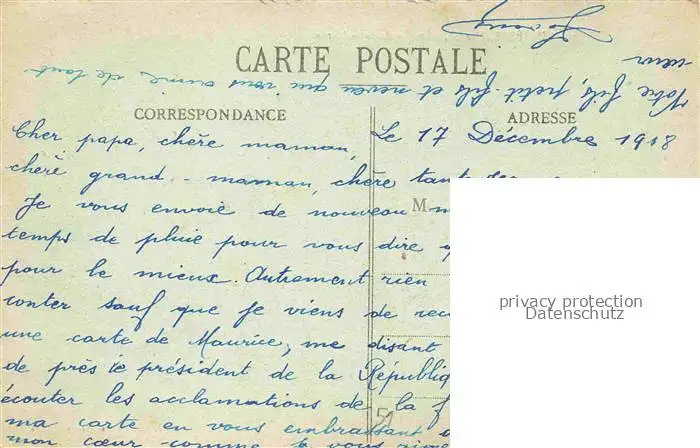 CARTE POSTALE
CORRESPONDANCE
ADRESSE
Le 17 Décembre 1918
Cher papa, chère maman,
chère grand-maman, chère tante
Je vous envoie de nouveau
M
temps de pluie pour vous dire
pour le mieux. Autrement rien
conter sauf que je viens de
une carte de Maurice, me disant
de près le président de la Républiq
écouter les acclamations de la f
ma carte en vous embrassant
mon cœur comme je vous aime
Votre fils, petit-fils et neveu qui vous aime de tout
cœur
privacy protection
Datenschutz